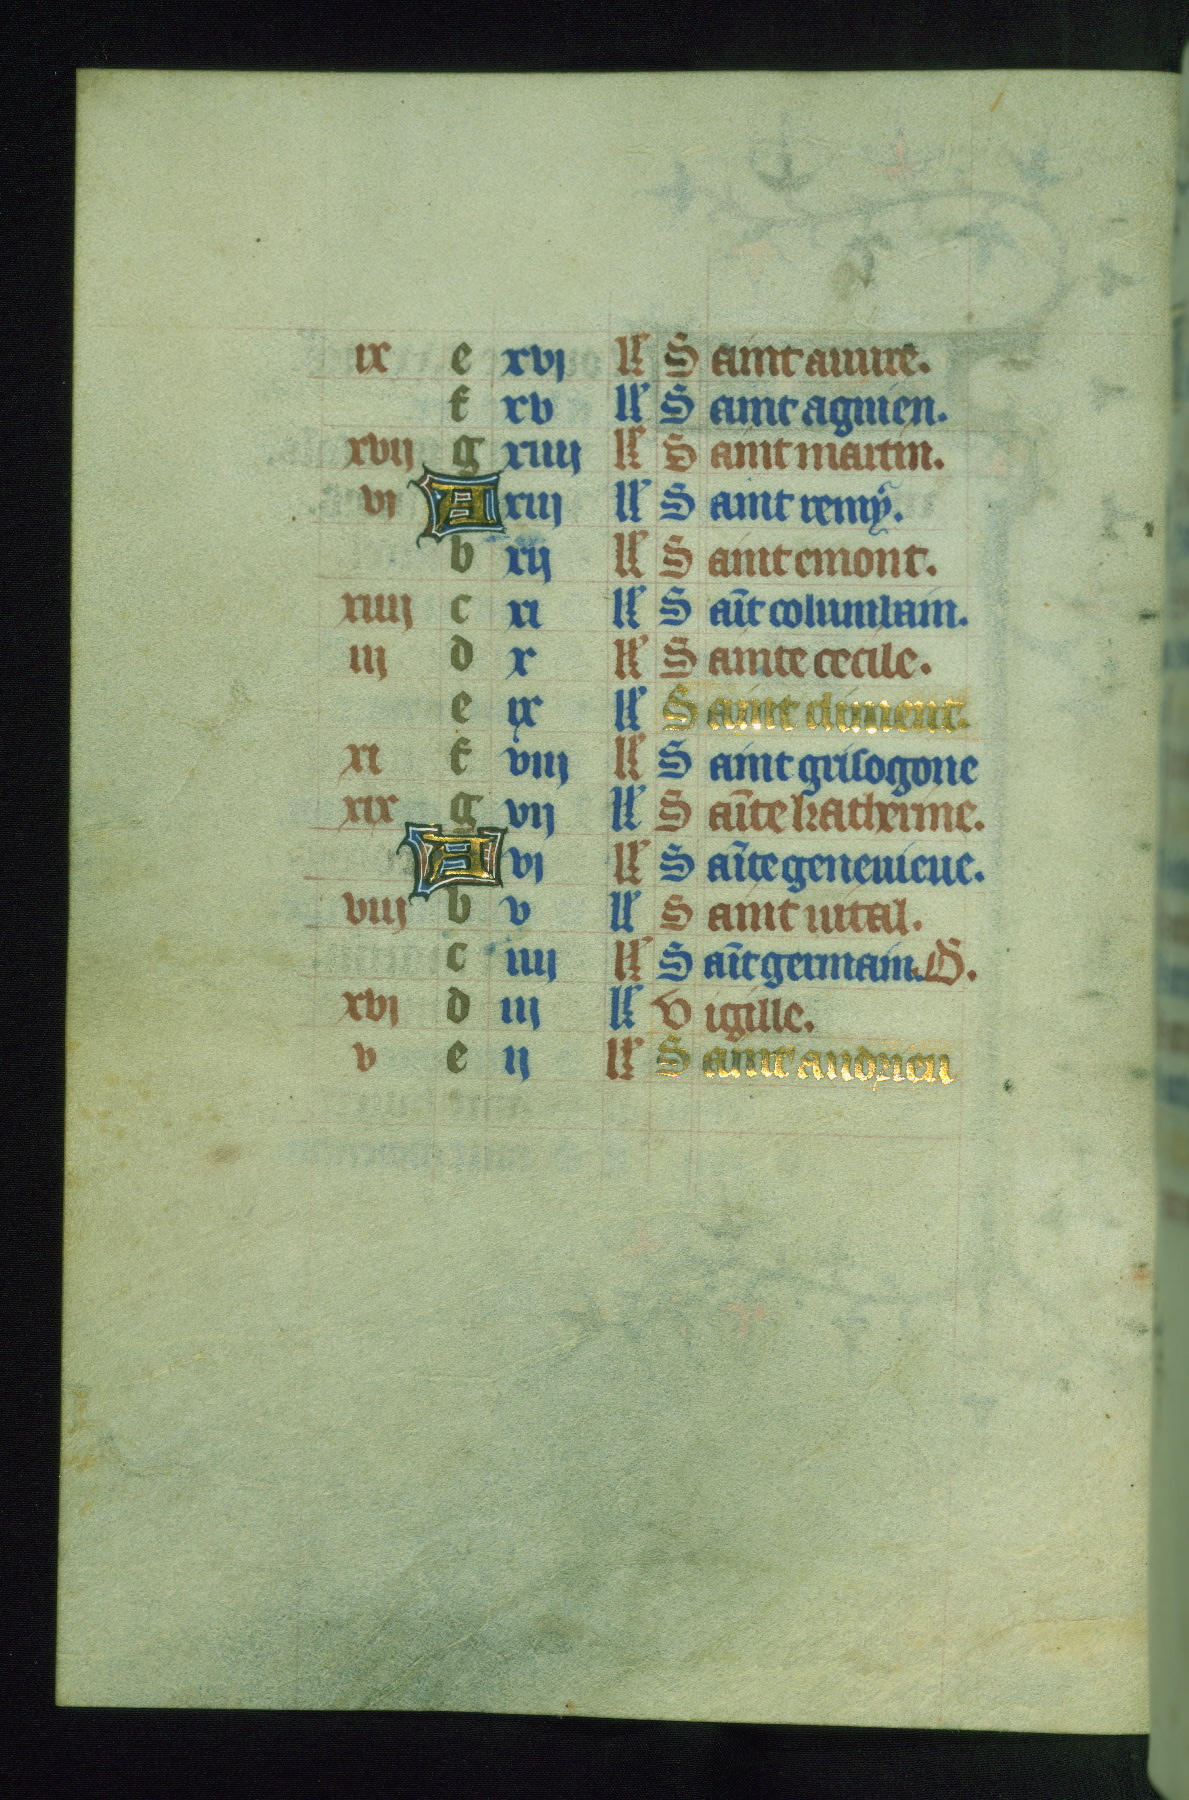 ix e xvj kł Saint auure.
f xv kł Saint agnien.
xvij g xiiij kł Saint martin.
vi A xiij kł Saint remy.
b xij kł Saint emont.
xiiij c xi kł Saīt columbain.
iij d x kł Sainte cecile.
e ix kł Saint climent.
xi f viij kł Saint grisogone
xix g vij kł Saīte katherine.
A vi kł Saīte geneuieue.
viij b v kł Saint uital.
c iiij kł Saīt germain. O.
xvj d iij kł Vigille.
v e ij kł Saint andrieu